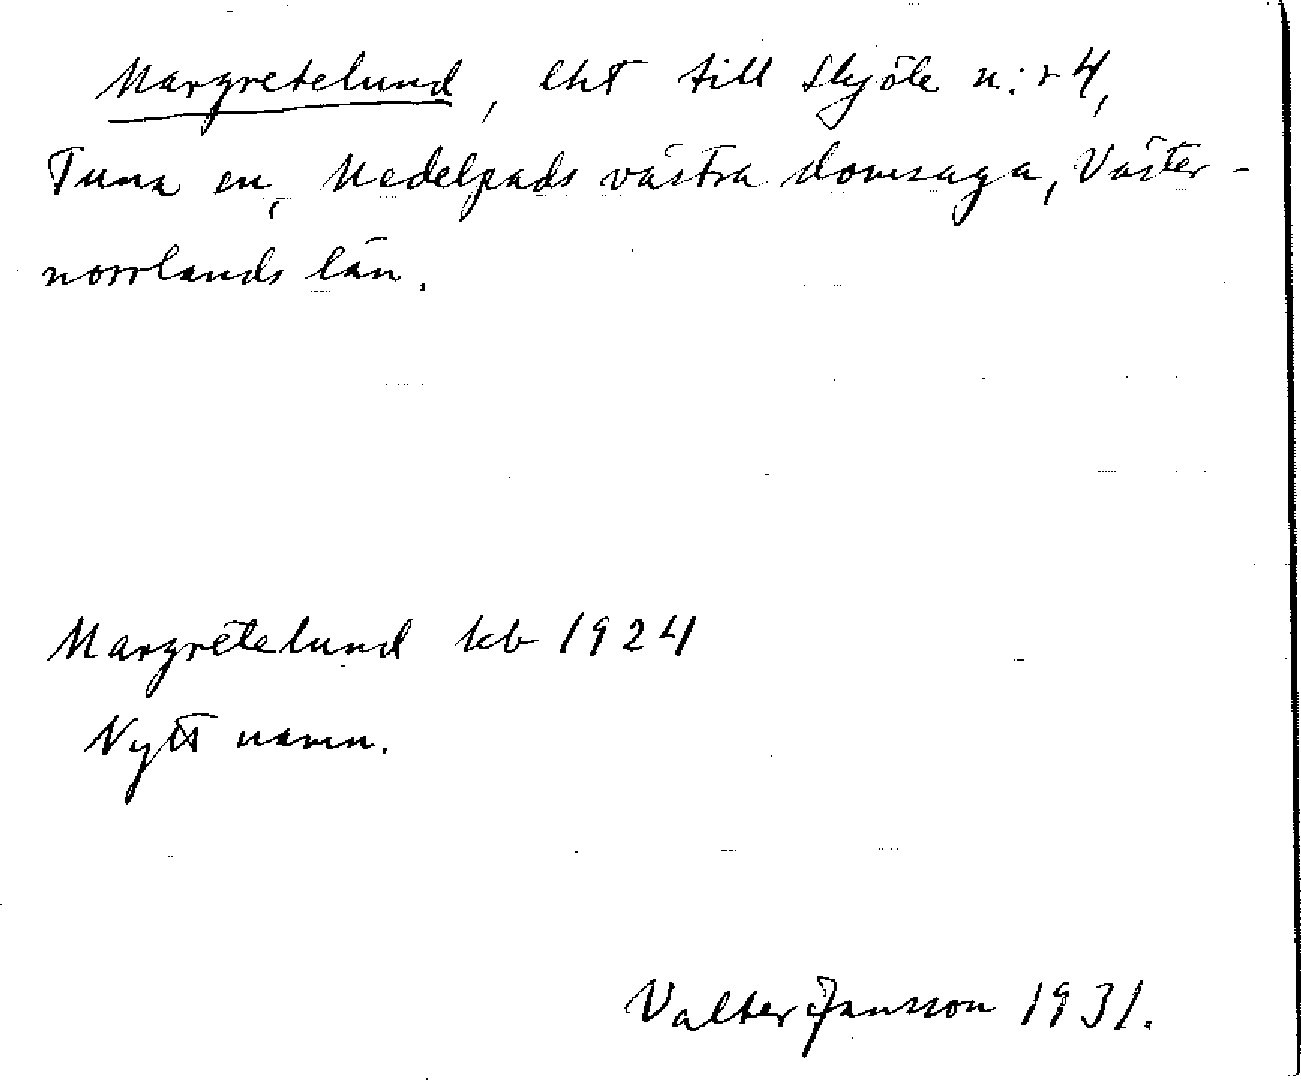 Margretelund, lht till Skjöle n:r 4,
Tuna sn, Medelpads västra domsaga, Väster-
norrlands län.
Margretelund kb 1924
Nytt namn.
Valter Jansson 1931.